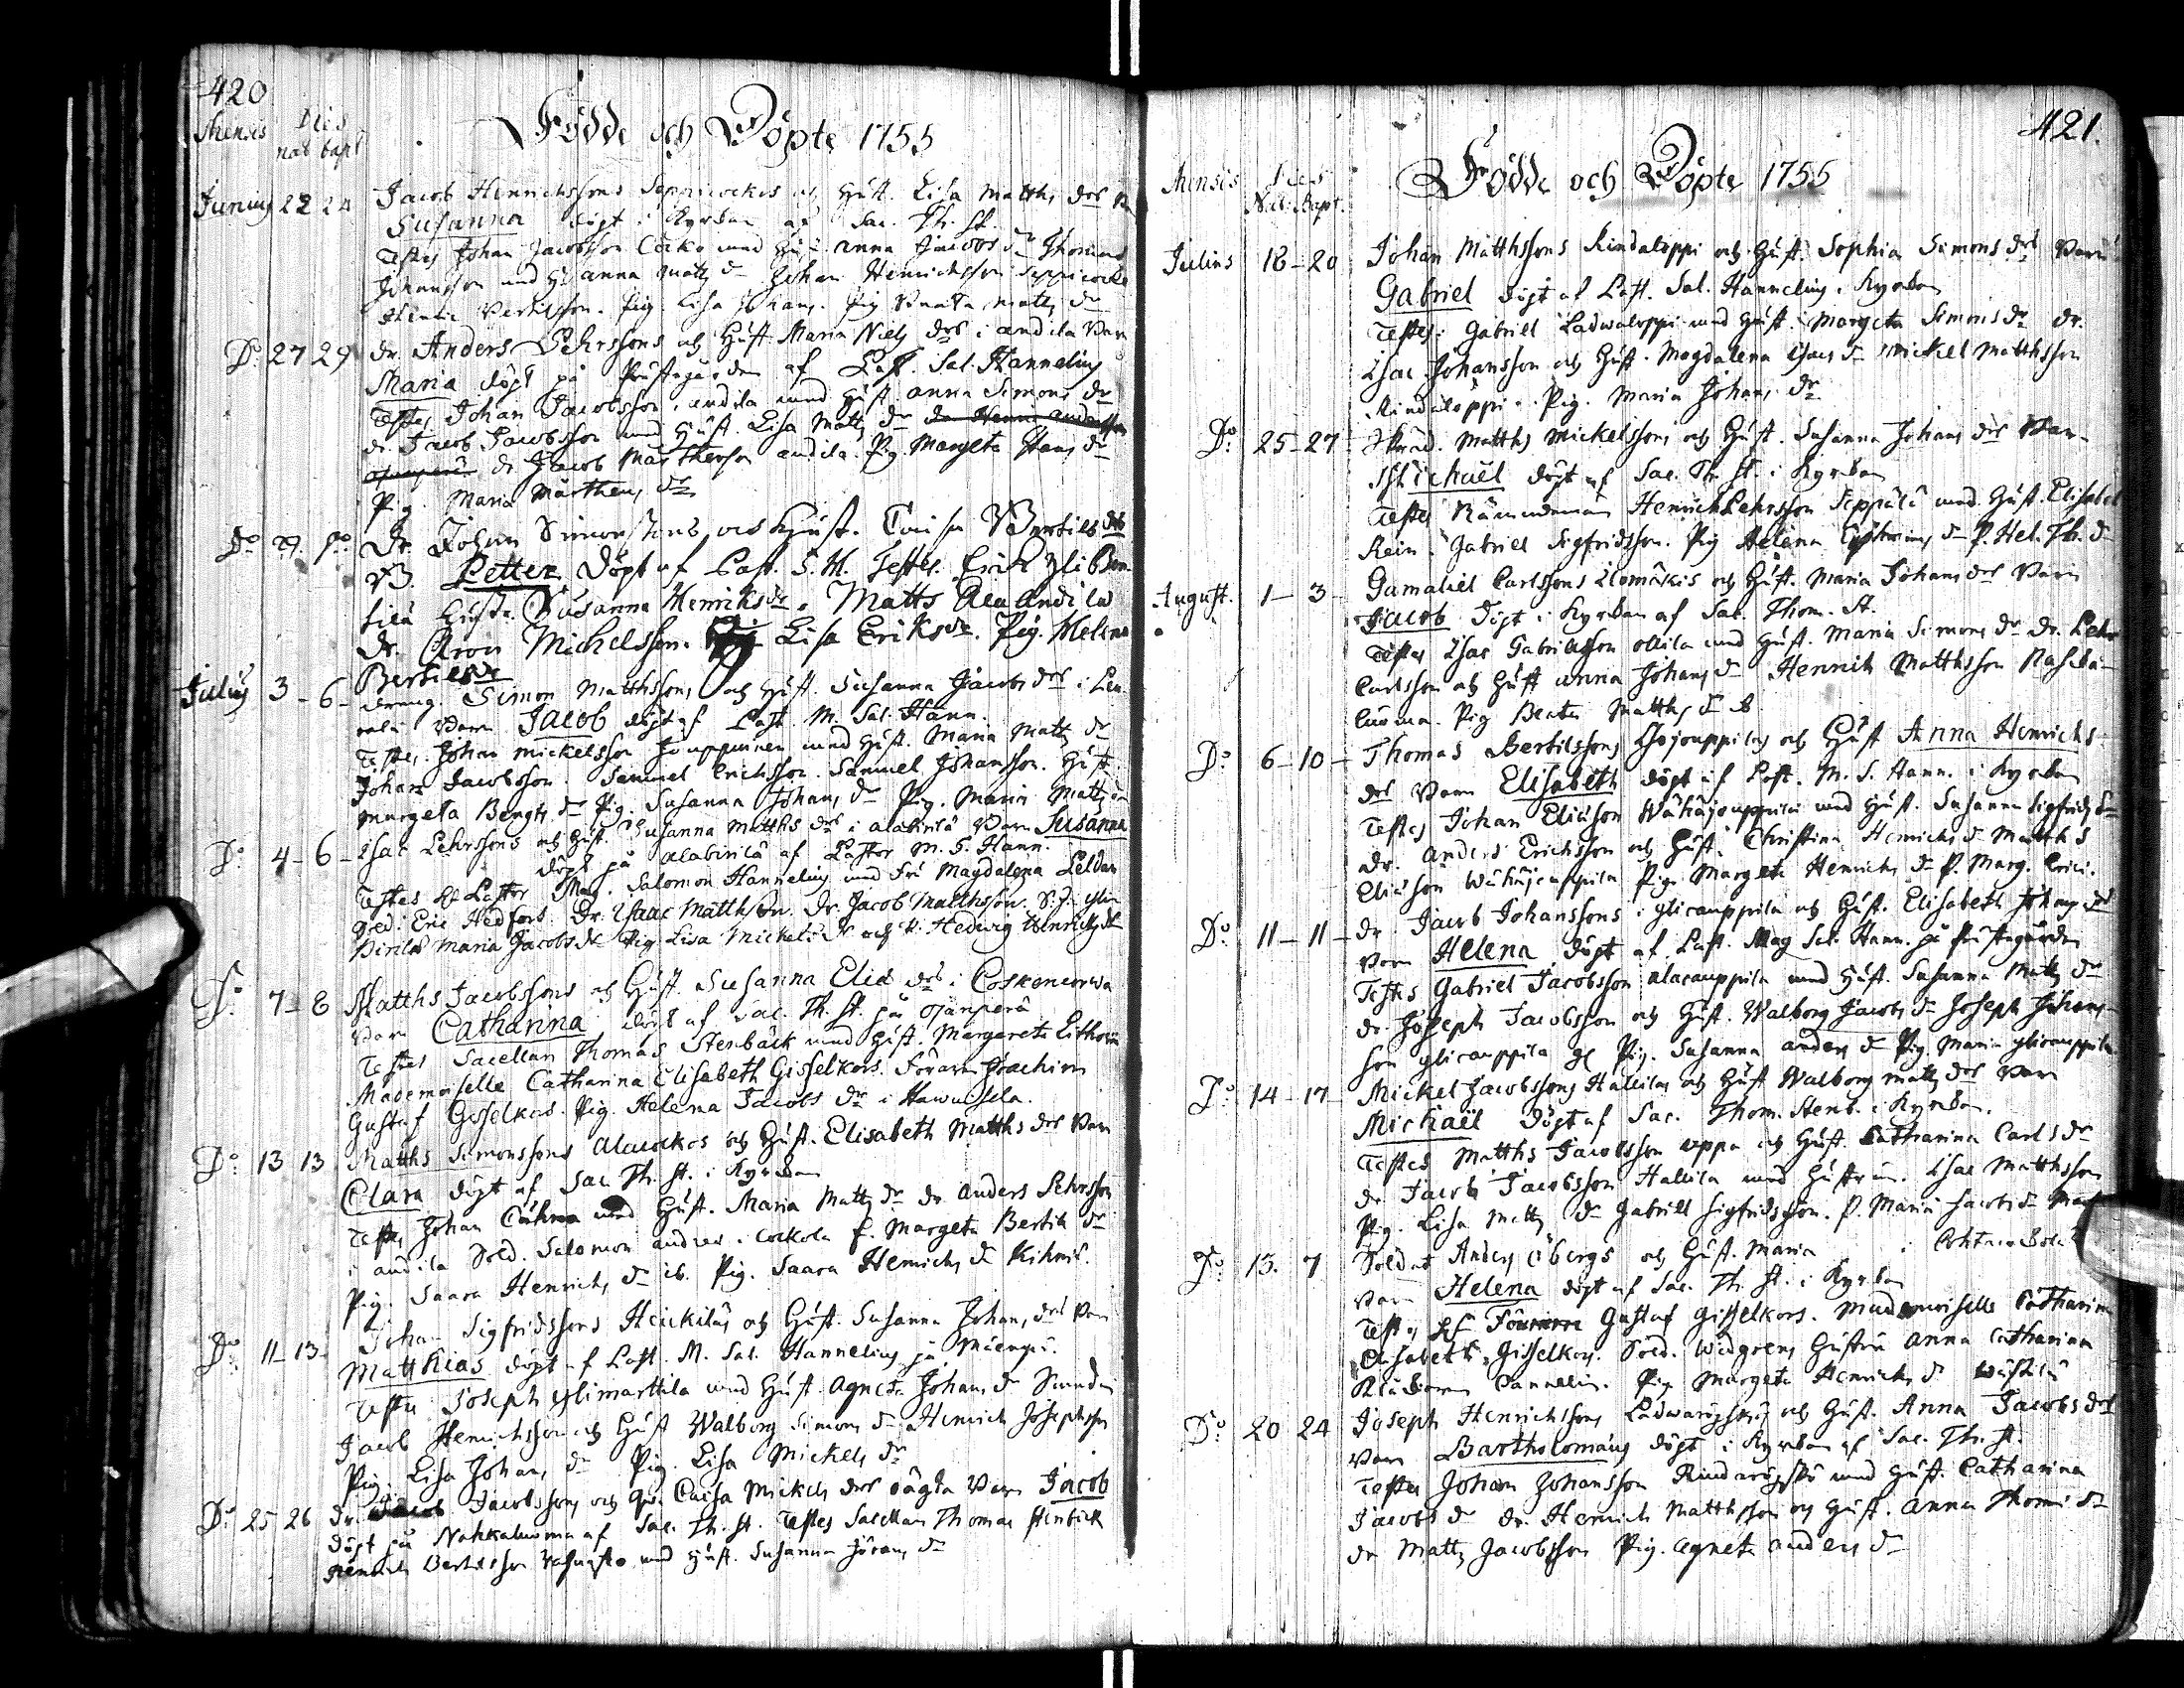 420
Mensis Dies
nat bapt
Födde och Döpte 1755
Junius 22 24 Jacob Henrichssons Seppicockos och Hust. Lisa Matths dr
Susanna döpt i Kyrkan af Sac. Th. St.
Testes Johan Jacobsson Cocko med Hust. Anna Jacobs dr Thomas
Johansson med H. Anna Matts dr Johan Henrichsson Seppicocko
Pig. Lisa Johans. Pig. Matts dr
Do 27 29 dr. Anders Lehrssons och Hust. Maria Niels dr i andila Barn
Maria döpt på Prästegården af Past. Sal. Hannelius
Testes Johan Jacobsson, andila med Hust. Anna Simons dr
dr. Jacob Jacobsson med Hust. Lisa Matts dr
dr Jacob andila. Pig. Margeta Hans dr
Pig. Maria Mårthens dr
Do 29. Do. Dr. Johan Simonssons och Hust. Caisa Bertils dr
B. Petter Döpt af Past. S. H. Testes. Erich
Hustr. Susanna Henriksdr. Matts Ala Andila
Dr. Aron Michelsson. Lisa Eriksdr. Pig. Helena
Bertilsdr
Julius 3 - 6 - Simon Matthssons och Hust. Susanna Jacobs dr i
Barn Jacob döpt af Past. M. Sal. Hann.
Testes. Johan Mickelsson Jouppinen med Hust. Maria Matts dr
Johan Jacobsson. Samuel Erichsson. Samuel Johansson. Hust.
Margeta Bengts dr Pig. Susanna Johans dr Pig. Maria Matts dr
Do 4 - 6 - Isac Lehrssons och Hust. Susanna Matths dr i alapirilä Barn Susanna
döpt på alapirilä af Pastor M. S. Hann.
Testes H Pastor Mag. Salomon Hannelius med Fru Magdalena Peldan
Eric Hedfors. Dr. Isaac Matthsson. Dr. Jacob Matthsson.
Maria Jacobs dr Pig. Lisa Mickels dr och P. Hedwig Henrichsdr
Do 7 - 8 Matths Jacobssons och Hust. Susanna Elia dr i Coskenkorwa
Barn Catharina döpt af Sac. Th. St. på ojanperä
Testes Sacellan Thomas Stenbäck med Hust. Margareta Lithovia
Mademoiselle Catharina Elisabeth Gisselkors. Joachim
Gustaf Gisselkors. Pig. Helena Jacobs dr i Hawusela.
Do 13 13 Matths Simonssons Alacockos och Hust. Elisabeth Matths dr Barn
Clara döpt af Sac. Th. St. i Kyrkan
Testes Johan med Hust. Maria Matts dr dr. Anders Lehrsson
i andila Sold. Salomon i Cockola P. Margeta Bertils dr
Pig. Saara Henrichs dr ib. Pig. Saara Henrichs dr Kihniö.
Do 11 - 13 - Johan Sigfridssons Heickiläs och Hust. Susanna Johans dr Barn
Matthias döpt af Past. M. Sal. Hannelius på Mäenpä.
Testes Joseph Ylimarttila med Hust. Agneta Johans dr
Jacob Henrichsson och Hust Walborg Simons dr Henrich Josephsson
Pig. Lisa Johans dr Pig. Lisa Mickels dr
Do 25 26 dr. Jacob Jacobssons och Caisa Mickels dr Barn Jacob
döpt på Nahkaluoma af Sac. Th. St. Testes Sacellan Thomas Stenbäck
Henrich Bertilsson med Hust. Susanna Jörans dr
421.
Mensis Dies
Nat. Bapt.
Födde och Döpte 1755
Julius 18 - 20 Johan Matthssons Rindaloppi och Hust. Sophia Simons dr Barn
Gabriel döpt af Past. Sal. Hannelius i Kyrkan
Testes: Gabriel Ladwaloppi med Hust. Margeta Simons dr dr.
Isac Johansson och Hust. Magdalena Isacs dr Mickel Matthsson
Rindaloppi. Pig. Maria Johans dr
Do 25 - 27 Matths Mickelssons och Hust. Susanna Johans dr Barn
Michaël döpt af Sac. Th. St. i Kyrkan
Testes Nämndeman Henrich Lehrsson Seppälä med Hust. Elisabet
Rein. Gabriel Sigfridsson. Pig Helena dr P. Hel. Th. dr
August. 1 - 3 Gamaliel Carlssons Ilomäkis och Hust. Maria Johans dr Barn
Jacob döpt i Kyrkan af Sac. Thom. St.
Testes Isac Gabrielsson ollila med Hust. Maria Simons dr dr. Lehr
Carlsson och Hust Anna Johans dr Henrich Matthsson
luoma. Pig Beata Matths dr
Do 6 - 10 - Thomas Bertilssons Isojouppilas och Hust Anna Henrichs
dr Barn Elisabeth döpt af Past. M. S. Hann. i Kyrkan
Testes Johan Eliæson Wähäjouppila med Hust. Susanna Sigfrids dr
Dr. Anders Erichsson och Hust. Christina Henrichs dr Matths
Eliæson Wähäjouppila Pig. Margeta Henrichs dr P. Marg. Erici.
Do 11 - 11 - dr. Jacob Johanssons i ylicauppila och Hust. Elisabeth Johans dr
Barn Helena döpt af Past. Mag Sal. Hann. på Prästegården
Testes Gabriel Jacobsson alacauppila med Hust. Susanna Matts dr
dr. Joseph Jacobsson och Hust. Walborg Jacobs dr Joseph Johans
son ylicauppila Pig. Susanna Anders dr Pig. Maria ylicauppila
Do 14 - 17 Mickel Jacobssons Hallilas och Hust Walborg Matts dr Barn
Michaël döpt af Sac. Thom. Stenb. i Kyrkan.
Testes Matths Jacobsson oppa och Hust. Catharina Carls dr
dr Jacob Jacobsson Hallila med Hustrun. Isac Matthsson
Pig. Lisa Matts dr Gabriel Sigfridsson. P. Maria Jacobs dr
Do 13. 7 Soldat Anders öbergs och Hust. Maria i
Barn Helena döpt af Sac. Th. St. i Kyrkan
Testes Gustaf Gisselkors. Mademoiselle Catharina
Elisabeth Gisselkors. Sold. Widgrens Hustru Anna Catharina
Cannelin. Pig Margeta Henrichs dr
Do 20 24 Joseph Henrichssons och Hust. Anna Jacobs dr
Barn Bartholomäus döpt i Kyrkan af Sac. Th. St.
Testes Johan Johansson med Hust. Catharina
Jacobs dr dr. Henrich Matthsson och Hust. Anna Thomæ dr
dr Matts Jacobsson Pig. Agneta Anders dr